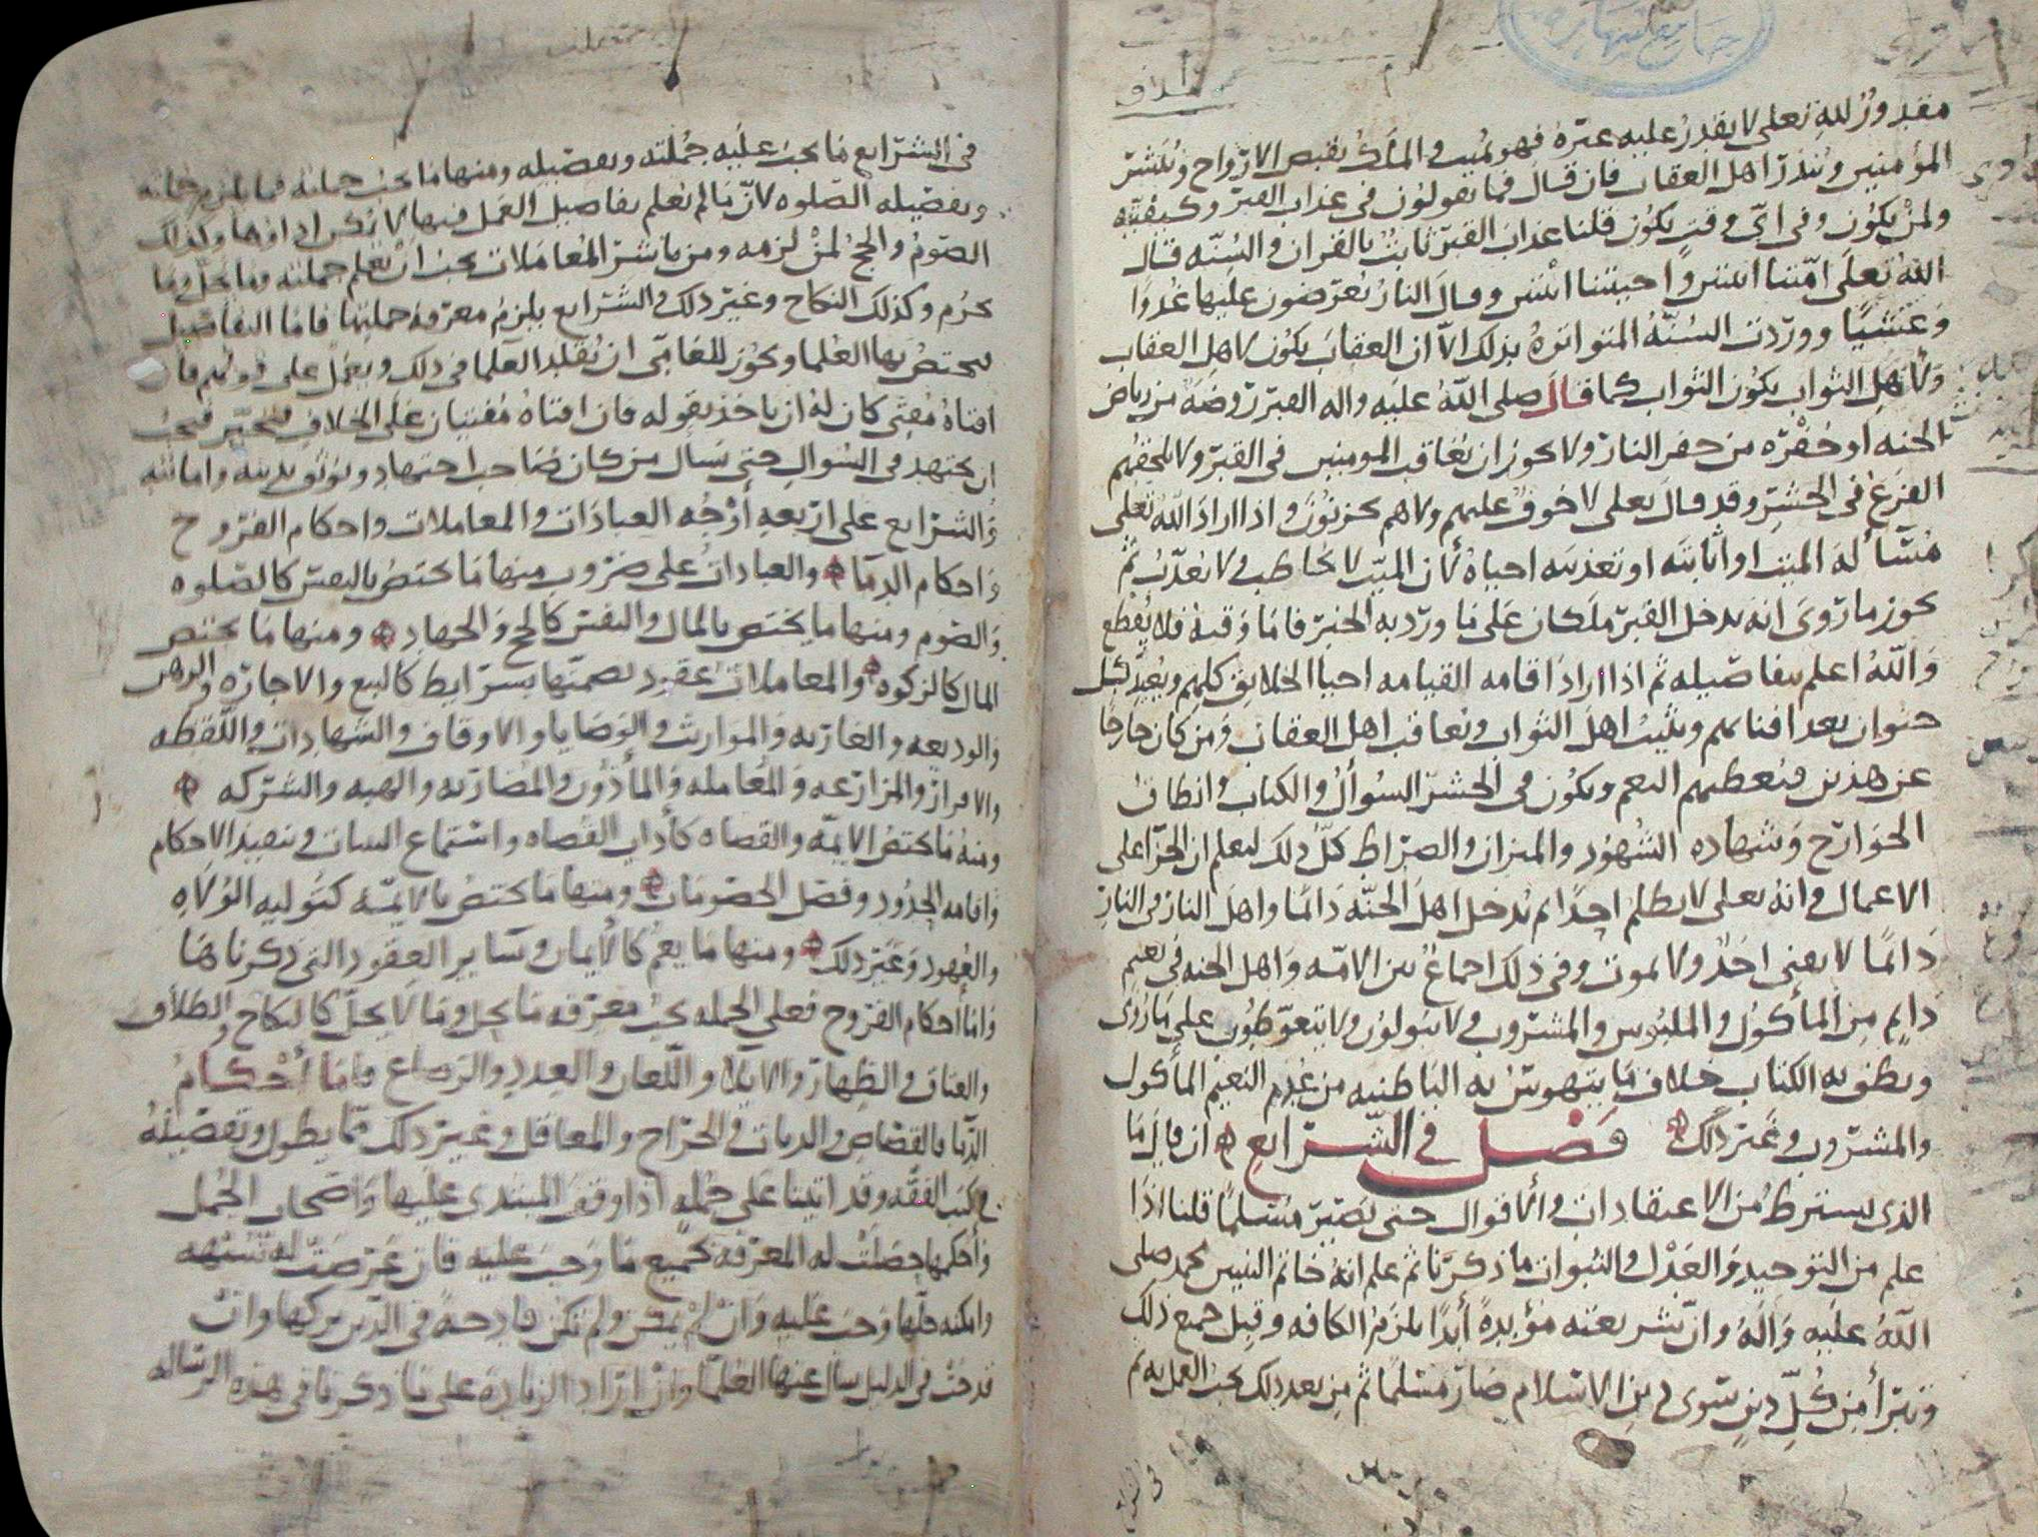 مقدور لله تعلى لا يقدر عليه غيره فهو مميت والملك يقبض الارواح ويبشر
المؤمنين وينذر اهل العقاب فان قال فما تقولون في عذاب القبر وكيفيته
ولمن يكون وفي اي وقت يكون قلنا عذاب القبر ثابت بالقران والسنه قال
الله تعلى امتنا اثنتين واحييتنا اثنتين وقال النار يعرضون عليها غدوا
وعشيا ووردت السنه المتواتره بذلك الا ان العقاب يكون لاهل العقاب
ولاهل الثواب يكون الثواب كما قال صلى الله عليه واله القبر روضة من رياض
الجنه او حفره من حفر النار ولا يجوز ان يعاقب المومنين في القبر ولا يلحقهم
الفزع في الحشر وقد قال تعلى لا خوف عليهم ولا هم يحزنون واذا اراد الله تعلى
مسألة الميت او اثابته او تعذيبه احياه لأن الميت لا يخاطب ولا يعذب ثم
يجوز ما روي انه يدخل القبر ملكان على ما ورد به الخبر فاما وقته فلا يقطع
والله اعلم بتفاصيله ثم اذا اراد اقامه القيامه احيا الخلايق كلهم ويعيد كل
حيوان بعد افنائهم ويثيب اهل الثواب ويعاقب اهل العقاب ومن كان خارجا
عن هذين فيعطيهم النعم ويكون في الحشر السؤال والكتاب وانطاق
الجوارح وشهاده الشهود والميزان والصراط كل ذلك ليعلم ان الجزا على
الاعمال وانه تعلى لا يظلم احدا ثم يدخل اهل الجنه دائما واهل النار في النار
دائما لا يفنى احد ولا يموت وفي ذلك اجماع بين الامه واهل الجنه في نعيم
دايم من المأكول والملبوس والمشروب ولا يبولون ولا يتغوطون على ما روي
ونطق به الكتاب خلاف ما يتهوس به الباطنيه من عدم النعيم المأكول
والمشروب وغير ذلك فصل في الشرايع ان قال ما
الذي يشترط من الاعتقادات والأقوال حتى يصير مسلما قلنا اذا
علم من التوحيد والعدل والنبوات ما ذكرنا ثم علم انه خاتم النبيين محمد صلى
الله عليه واله وان شريعته مؤبدة أبدا يلزم الكافه وقبل جميع ذلك
وتبرأ من كل دين سوى دين الاسلام صار مسلما ثم من بعد ذلك يجب العمل به ثم
في الشرايع ما يجب عليه جملته وتفصيله ومنها ما يجب جملته فما يلزم جملته
وتفصيله الصلوه لأن ما لم يعلم تفاصيل العمل فيها لا يمكن اداؤها وكذلك
الصوم والحج لمن لزمه ومن باشر المعاملات يجب ان يعلم جملته وما يحل وما
يحرم وكذلك النكاح وغير ذلك والشرايع يلزم معرفة جملتها فاما التفاصيل
يختص بها العلما ويجوز للعامي ان يقلد العلما في ذلك ويعمل على قولهم فإن
افتاه مفتي كان له ان ياخذ بقوله فان افتاه مفتيان على الخلاف فيتخير فيجب
ان يجتهد في السوال حتى يسأل من كان صاحب اجتهاد ويوثق بدينه وامانته
والشرايع على اربعه أوجه العبادات والمعاملات واحكام الفروج
واحكام الدما والعبادات على ضروب منها ما يختص بالنفس كالصلوه
والصوم ومنها ما يختص بالمال والنفس كالحج والجهاد ومنها ما يختص
المال كالزكوه والمعاملات عقود نصحتها بشرايط كالبيع والاجاره والرهن
والوديعه والعاريه والمواريث والوصايا والاوقاف والشهادات واللقطه
والاقرار والمزارعه والمعامله والمأذون والمضاربه والهبه والشركه
ومنه ما يختص الايمه والقضاه كأداب القضاه واستماع البينات وتنفيذ الاحكام
واقامه الحدود وفصل الخصومات ومنها ما يختص بالايمه كتوليه الولاه
والعهود وغير ذلك ومنها ما يعم كالأيمان وساير العقود التي ذكرناها
واما أحكام الفروج فعلى الجمله يجب معرفه ما يحل وما لا يحل كالنكاح والطلاق
والعتاق والظهار والايلا واللعان والعدد والرضاع فاما أحكام
الدما فالقصاص والديات والجراح والمعاقل وغير ذلك مما يطول وتفصيله
في كتب الفقه وقد اتينا على جمله اذا وقف المبتدي عليها وأصحاب الجمل
وأحكمها حصلت له المعرفة بجميع ما وجب عليه فان عرضت له شبهه
وامكنه حلها وجب عليه وان لم يمكن ولم تكن قادحة في الدين تركها وان
قدحت في الدليل سال عنها العلما وان اراد الزيادة على ما ذكرنا في هذه الرساله